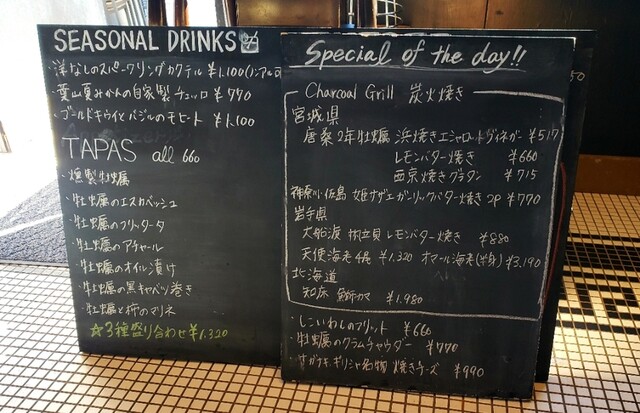 SEASONAL DRINKS
・洋なしのスパークリングカクテル ¥1,100(ノンアル可)
・葉山夏みかんの自家製チェッロ ¥770
・ゴールドキウイとバジルのモヒート ¥1,100
TAPAS all 660
・燻製牡蠣
・牡蠣のエスカベッシュ
・牡蠣のフリッタータ
・牡蠣のアチャール
・牡蠣のオイル漬け
・牡蠣の黒キャベツ巻き
・牡蠣と柿のマリネ
☆3種盛り合わせ¥1,320
Special of the day!!
Charcoal Grill 炭火焼き
宮城県
唐桑2年牡蠣 浜焼きエシャロットヴィネガー ¥517
レモンバター焼き ¥660
西京焼きグラタン ¥715
神奈川・佐島 姫サザエガーリックバター焼き 2P ¥770
岩手県
大船渡 帆立貝レモンバター焼き ¥880
天使海老4尾 ¥1,320 オマール海老(半身) ¥3,190
北海道
知床 鰤カマ ¥1,980
・しこいわしのフリット ¥660
・牡蠣のクラムチャウダー ¥770
・サガナキ・ギリシャ名物 焼きチーズ ¥990
50